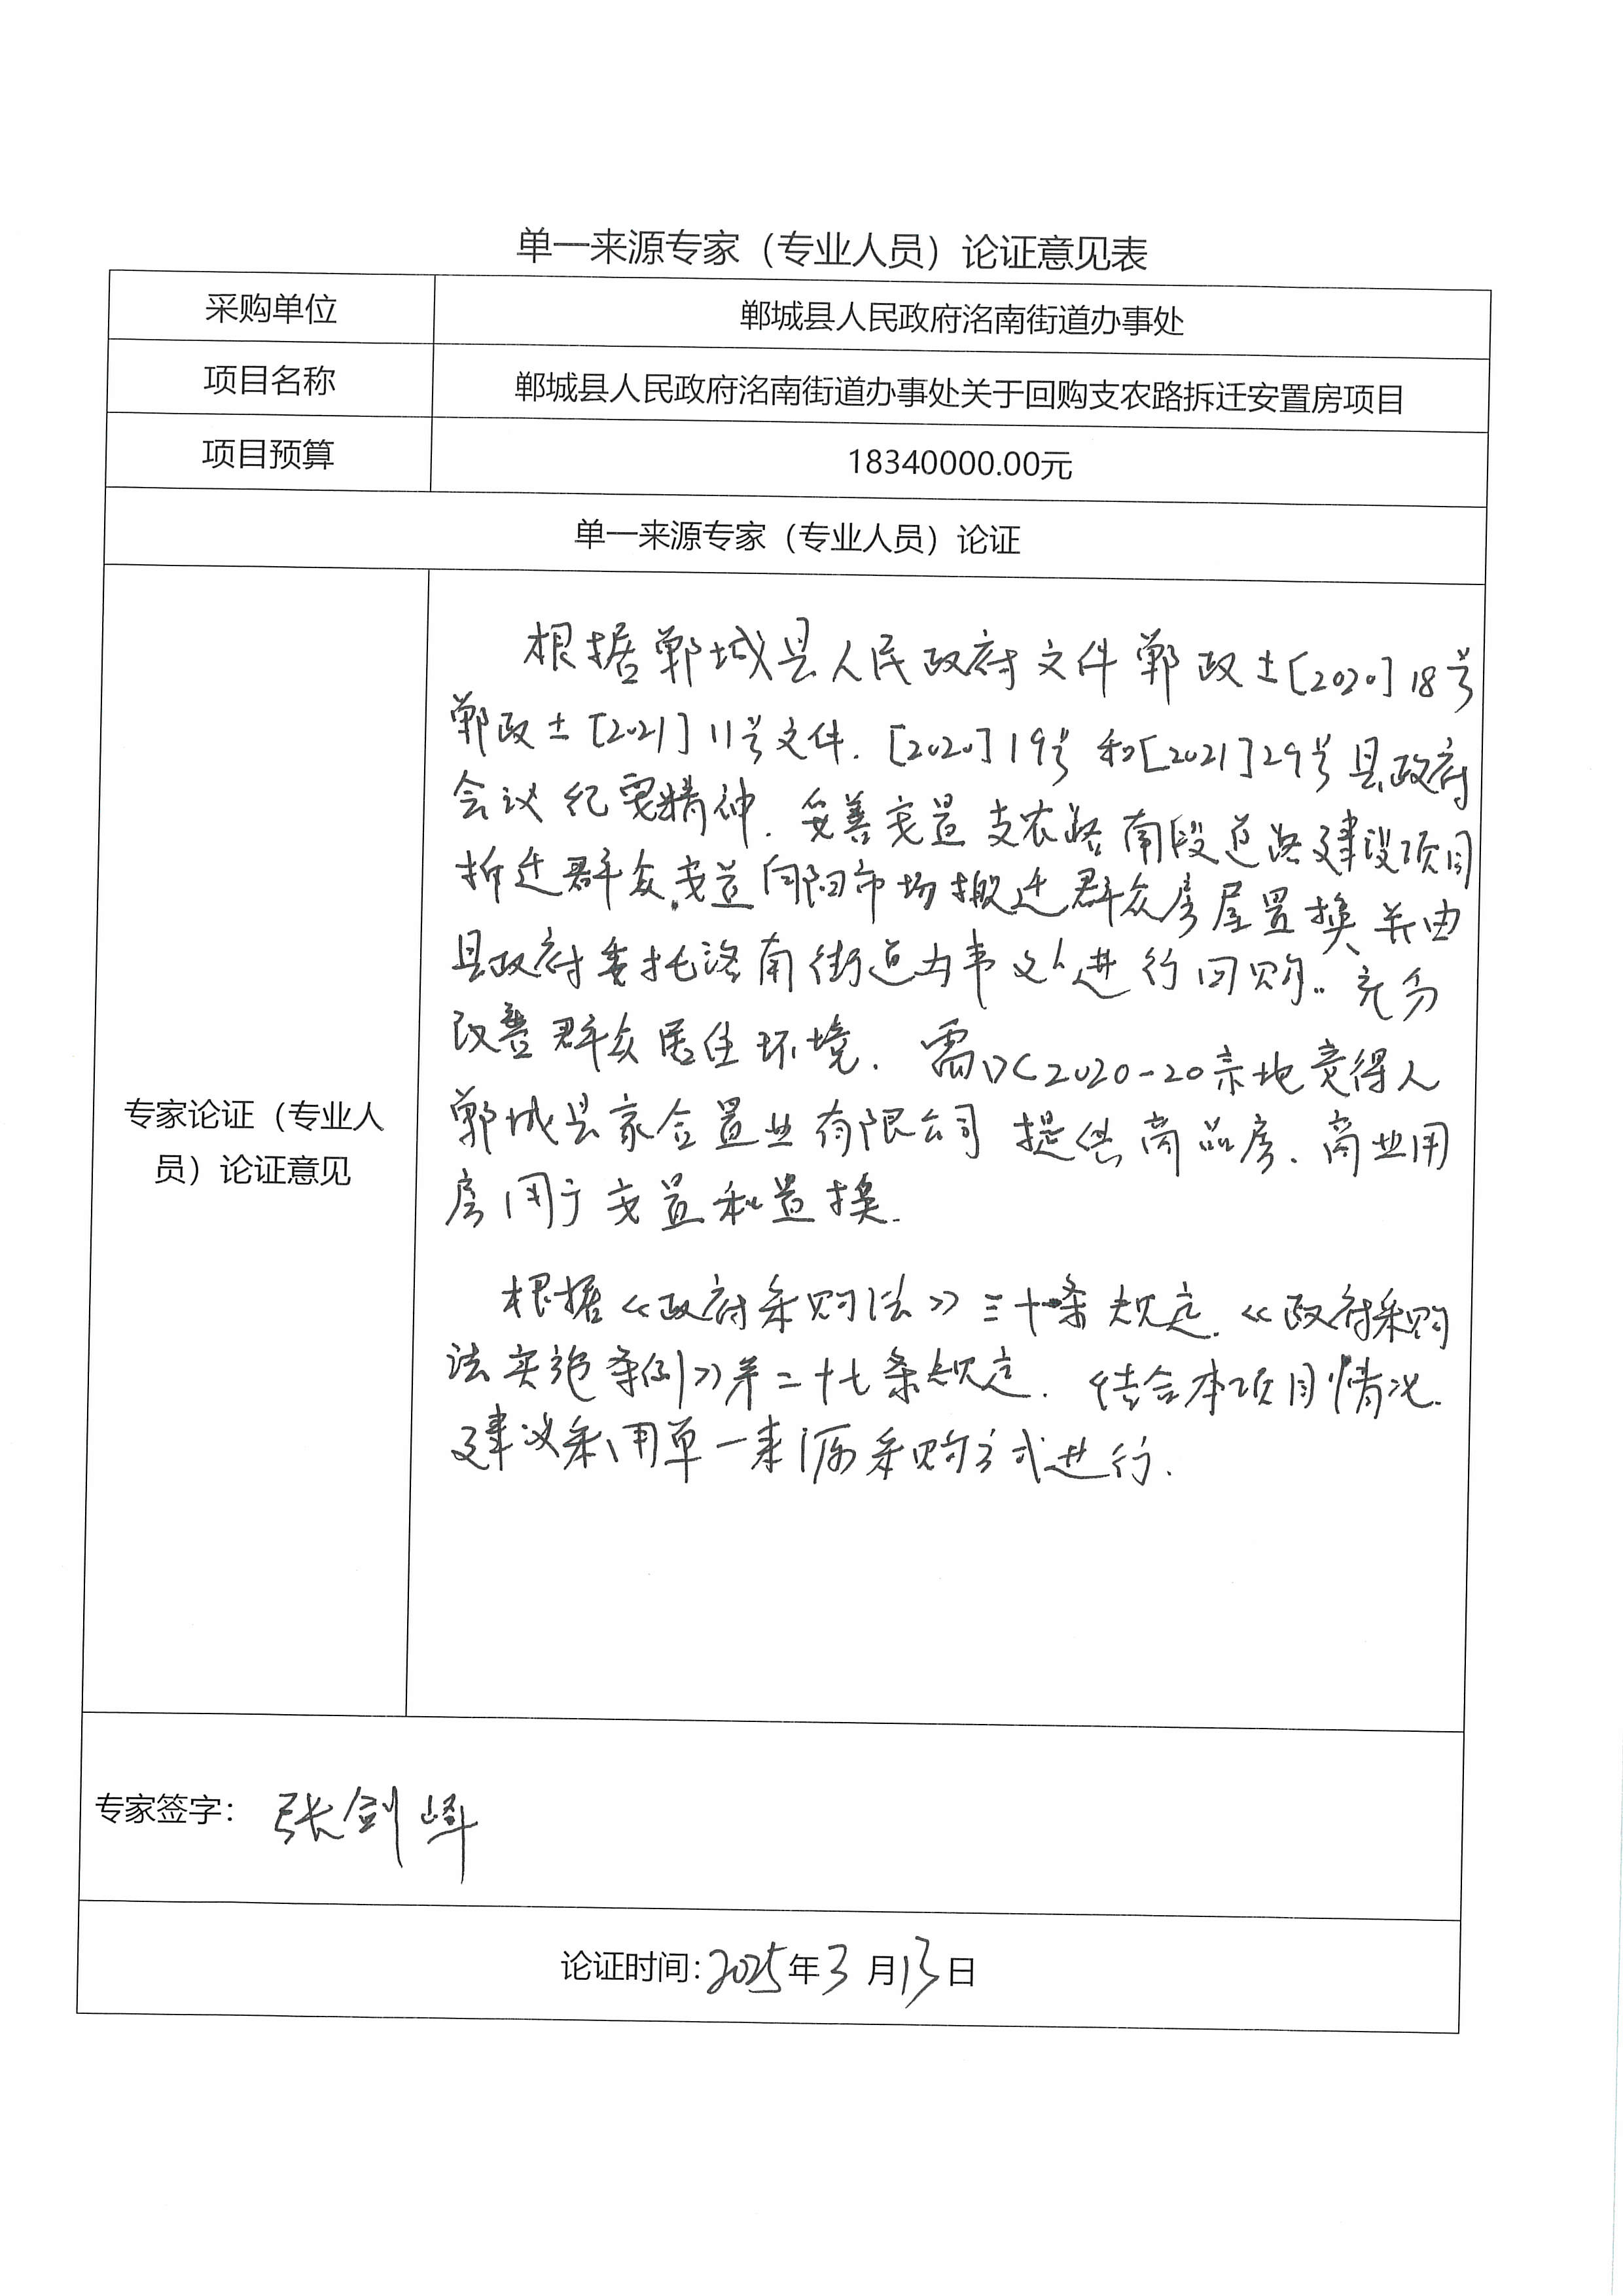 单一来源专家（专业人员）论证意见表
采购单位
郸城县人民政府洺南街道办事处
项目名称
郸城县人民政府洺南街道办事处关于回购支农路拆迁安置房项目
项目预算
18340000.00元
单一来源专家（专业人员）论证
专家论证（专业人
员）论证意见
根据郸城县人民政府文件郸政土[2020]18号
郸政土[2021]11号文件.[2020]19号和[2021]29号县政府
会议纪要精神.妥善安置支农路南段道路建设项目
拆迁群众.安置向阳市场搬迁群众房屋置换并由
县政府委托洺南街道办事处进行回购..充分
改善群众居住环境.需DC2020-20宗地竞得人
郸城县家合置业有限公司提供商品房、商业用
房用于安置和置换.
根据《政府采购法》三十一条规定.《政府采购
法实施条例》第二十七条规定.结合本项目情况.
建议采用单一来源采购方式进行.
专家签字：张剑峰
论证时间：2025年3月13日